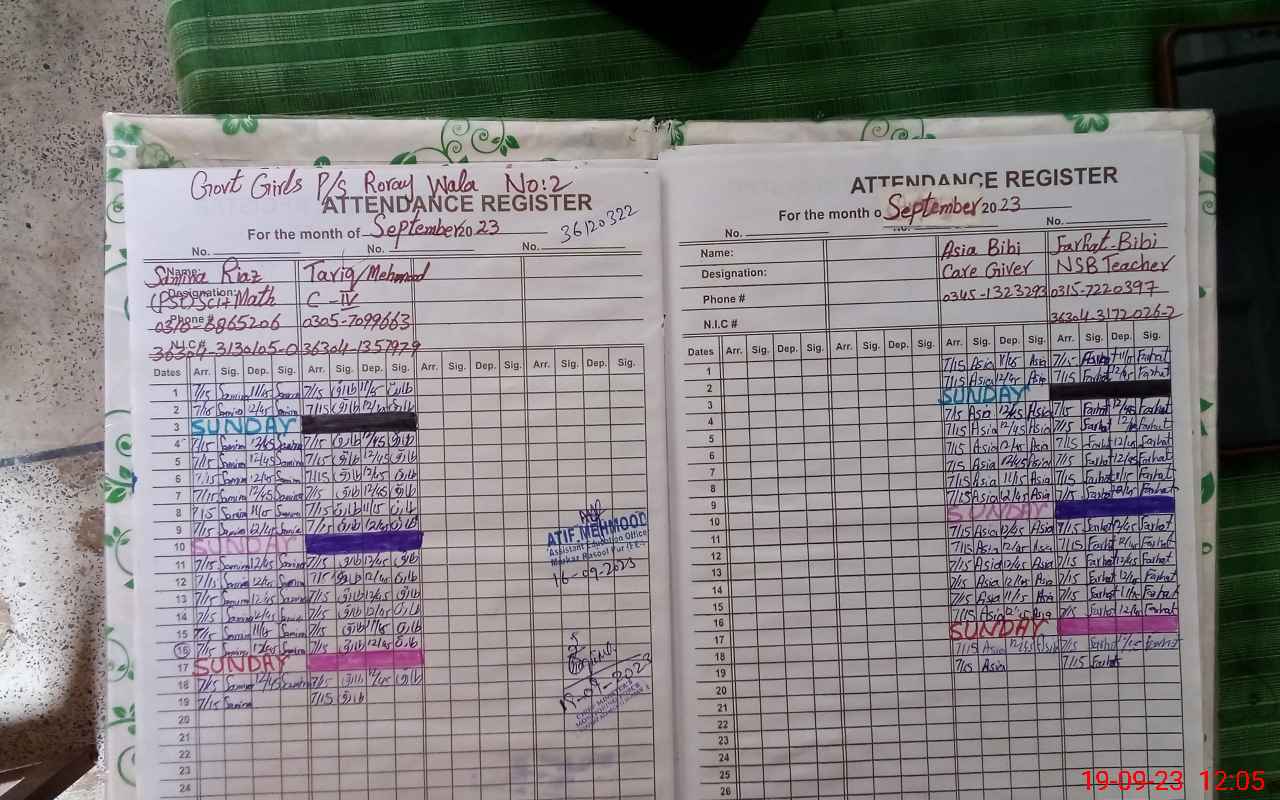 Govt Girls P/S Roray Wala No:2
ATTENDANCE REGISTER
For the month of September 2023
36120322
No. No. No.
Name: Samina Riaz Tariq Mehmood
Designation: (PST) Sci+Math C-IV
Phone # 0305-7099663
N.I.C # 36304-3130105-0 36304-1357979
Dates Arr. Sig. Dep. Sig. Arr. Sig. Dep. Sig. Arr. Sig. Dep. Sig. Arr. Sig. Dep. Sig.
1 7/15 Samina 11/15 Samina 7/15 طارق 11/15 طارق
2 7/15 Samina 12/45 Samina 7/15 طارق 12/45 طارق
3 SUNDAY
4 7/15 Samina 12/45 Samina 7/15 طارق 12/45 طارق
5 7/15 Samina 12/45 Samina 7/15 طارق 12/45 طارق
6 7/15 Samina 12/45 Samina 7/15 طارق 12/45 طارق
7 7/15 Samina 12/45 Samina 7/15 طارق 12/45 طارق
8 7/15 Samina 11/15 Samina 7/15 طارق 11/15 طارق
9 7/15 Samina 12/45 Samina 7/15 طارق 12/45 طارق
10 SUNDAY
11 7/15 Samina 12/45 Samina 7/15 طارق 12/45 طارق
12 7/15 Samina 12/45 Samina 7/15 طارق 12/45 طارق
13 7/15 Samina 12/45 Samina 7/15 طارق 12/45 طارق
14 7/15 Samina 12/45 Samina 7/15 طارق 12/45 طارق
15 7/15 Samina 11/15 Samina 7/15 طارق 11/15 طارق
16 7/15 Samina 12/45 Samina 7/15 طارق 12/45 طارق
17 SUNDAY
18 7/15 Samina 12/45 Samina 7/15 طارق 12/45 طارق
19 7/15 Samina 7/15 طارق
20
21
22
23
24
ATIF MEHMOOD
Assistant Education Officer
Markaz Rasool Pur
16-09-2023
19-09-2023
ATTENDANCE REGISTER
For the month o September 2023
No. No. No.
Name: Asia Bibi Farhat Bibi
Designation: Care Giver NSB Teacher
Phone # 0345-1323293 0315-7220397
N.I.C # 36304-3172026-2
Dates Arr. Sig. Dep. Sig. Arr. Sig. Dep. Sig.
1 7/15 Asia 11/15 Asia 7/15 Farhat 11/15 Farhat
2 7/15 Asia 12/45 Asia 7/15 Farhat 12/45 Farhat
3 SUNDAY
4 7/15 Asia 12/45 Asia 7/15 Farhat 12/45 Farhat
5 7/15 Asia 12/45 Asia 7/15 Farhat 12/45 Farhat
6 7/15 Asia 12/45 Asia 7/15 Farhat 12/45 Farhat
7 7/15 Asia 12/45 Asia 7/15 Farhat 12/45 Farhat
8 7/15 Asia 11/15 Asia 7/15 Farhat 11/15 Farhat
9 7/15 Asia 12/45 Asia 7/15 Farhat 12/45 Farhat
10 SUNDAY
11 7/15 Asia 12/45 Asia 7/15 Farhat 12/45 Farhat
12 7/15 Asia 12/45 Asia 7/15 Farhat 12/45 Farhat
13 7/15 Asia 12/45 Asia 7/15 Farhat 12/45 Farhat
14 7/15 Asia 12/45 Asia 7/15 Farhat 12/45 Farhat
15 7/15 Asia 11/15 Asia 7/15 Farhat 11/15 Farhat
16 7/15 Asia 12/45 Asia 7/15 Farhat 12/45 Farhat
17 SUNDAY
18 7/15 Asia 12/45 Asia 7/15 Farhat 12/45 Farhat
19 7/15 Asia 7/15 Farhat
20
21
22
23
24
25
26
19-09-23 12:05